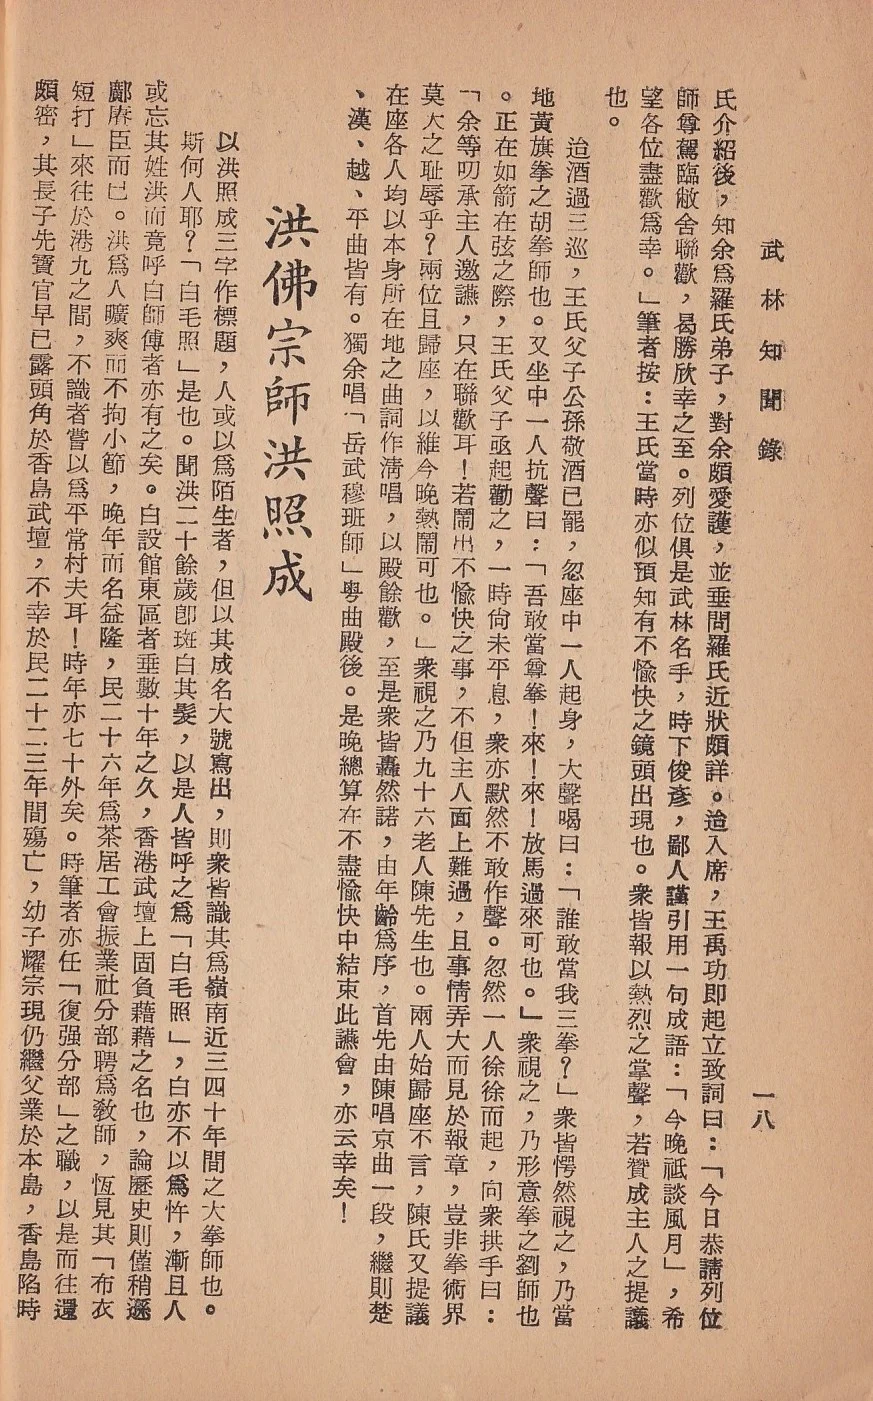 武林知聞錄
一八
氏介紹後，知余爲羅氏弟子，對余頗愛護，並垂問羅氏近狀頗詳。迨入席，王禹功即起立致詞曰：「今日恭請列位
師尊駕臨敝舍聯歡，曷勝欣幸之至。列位俱是武林名手，時下俊彥，鄙人謹引用一句成語：「今晚祗談風月」，希
望各位盡歡爲幸。」筆者按：王氏當時亦似預知有不愉快之鏡頭出現也。衆皆報以熱烈之掌聲，若贊成主人之提議
也。
迨酒過三巡，王氏父子公孫敬酒已罷，忽座中一人起身，大聲喝曰：「誰敢當我三拳？」衆皆愕然視之，乃當
地黃旗拳之胡拳師也。又坐中一人抗聲曰：「吾敢當尊拳！來！來！放馬過來可也。」衆視之，乃形意拳之劉師也
。正在如箭在弦之際，王氏父子亟起勸之，一時尙未平息，衆亦默然不敢作聲。忽然一人徐徐而起，向衆拱手曰：
「余等叨承主人邀讌，只在聯歡耳！若鬧出不愉快之事，不但主人面上難過，且事情弄大而見於報章，豈非拳術界
莫大之耻辱乎？兩位且歸座，以維今晚熱鬧可也。」衆視之乃九十六老人陳先生也。兩人始歸座不言，陳氏又提議
在座各人均以本身所在地之曲詞作淸唱，以殿餘歡，至是衆皆轟然諾，由年齡爲序，首先由陳唱京曲一段，繼則楚
、漢、越、平曲皆有。獨余唱「岳武穆班師」粵曲殿後。是晚總算在不盡愉快中結束此讌會，亦云幸矣！
洪佛宗師洪照成
以洪照成三字作標題，人或以爲陌生者，但以其成名大號寫出，則衆皆識其爲嶺南近三四十年間之大拳師也。
斯何人耶？「白毛照」是也。聞洪二十餘歲卽斑白其髮，以是人皆呼之爲「白毛照」，白亦不以爲忤，漸且人
或忘其姓洪而竟呼白師傅者亦有之矣。白設館東區者垂數十年之久，香港武壇上固負藉藉之名也，論歷史則僅稍遜
鄺𢊁臣而已。洪爲人曠爽而不拘小節，晚年而名益隆，民二十六年爲茶居工會振業社分部聘爲敎師，恆見其「布衣
短打」來往於港九之間，不識者嘗以爲平常村夫耳！時年亦七十外矣。時筆者亦任「復强分部」之職，以是而往還
頗密，其長子先寶官早已露頭角於香島武壇，不幸於民二十二三年間殤亡，幼子耀宗現仍繼父業於本島，香島陷時